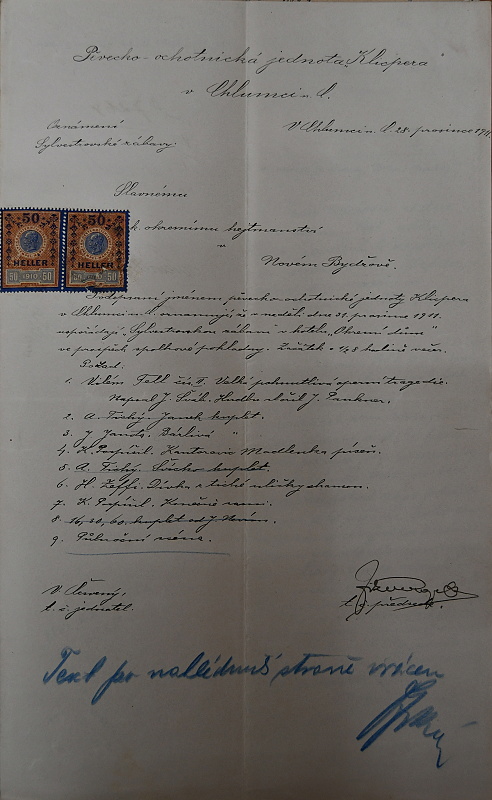 Pěvecko-ochotnická jednota „Klicpera"
v Chlumci n. C.
Oznámení
Sylvestrovské zábavy.
V Chlumci n. C. 28. prosince 1911
Slavnému
k. okresnímu hejtmanství
v
Novém Bydžově.
50 50
HELLER HELLER
50 1910 50 50 50
Podepsaní jménem pěvecko ochotnické jednoty Klicpera
v Chlumci n. C. oznamují, že v neděli, dne 31. prosince 1911.
uspořádají „Sylvestrovskou zábavu" v hotelu „Okresní dům"
ve prospěch spolkové pokladny. Začátek o 1/2 8 hodině več.
Pořad:
1. Vilém Tell čís. II. Velká pohnutlivá operní tragedie.
Napsal J. Hudbu složil J.
2. A. Tichý. Janek kuplet.
3. J. Janda. "
4. K. Pospíšil. Kantorovic Madlenka píseň.
5. A. Tichý. kuplet.
6. H. Dívka s tiché uličky
7. K. Pospíšil.
8. 16, 20, 60, kuplet od J.
9. Půlnoční scéna.
V. Červený,
t. č. jednatel.
t. č. předseda.
Text po nahlédnutí straně vrácen